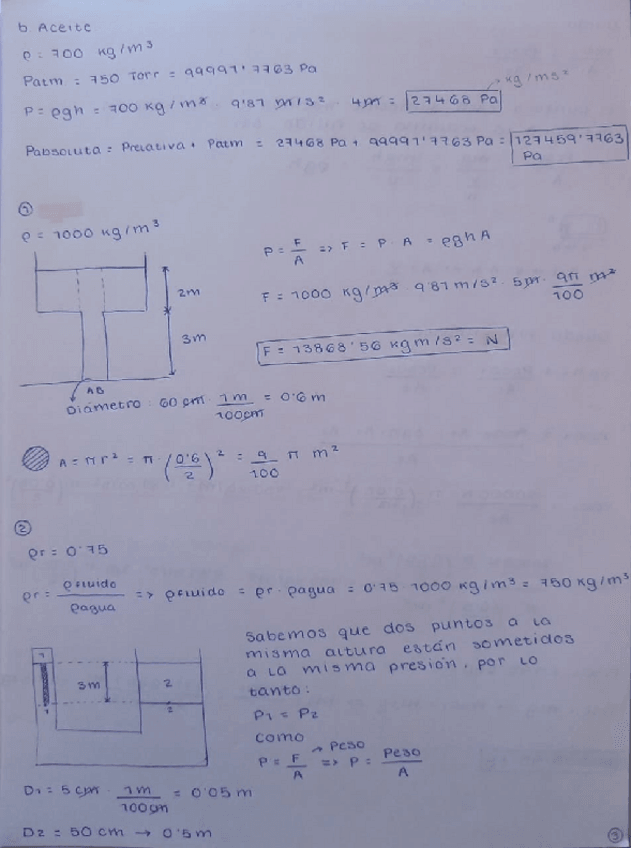 b. Aceite
ρ = 700 kg/m³
Patm = 750 Torr = 99991'7763 Pa
P = ρgh = 700 kg/m³ · 9'81 m/s² · 4m = 27468 Pa → kg/ms²
Pabsoluta = Prelativa + Patm = 27468 Pa + 99991'7763 Pa = 127459'7763 Pa
①
ρ = 1000 kg/m³
2m
3m
AB
P = F/A => F = P · A = ρghA
F = 1000 kg/m³ · 9'81 m/s² · 5m · 9π/100 m²
F = 13868'56 kg m/s² = N
Diámetro: 60 cm · 1m/100cm = 0'6 m
A = π r² = π · (0'6/2)² = 9/100 π m²
②
ρr = 0'75
ρr = ρfluido/ρagua => ρfluido = ρr · ρagua = 0'75 · 1000 kg/m³ = 750 kg/m³
1
3m
2
1
2
Sabemos que dos puntos a la
misma altura están sometidos
a la misma presión, por lo
tanto:
P1 = P2
como
P = F/A → Peso => P = Peso/A
D1 = 5 cm · 1m/100cm = 0'05 m
D2 = 50 cm → 0'5 m
③